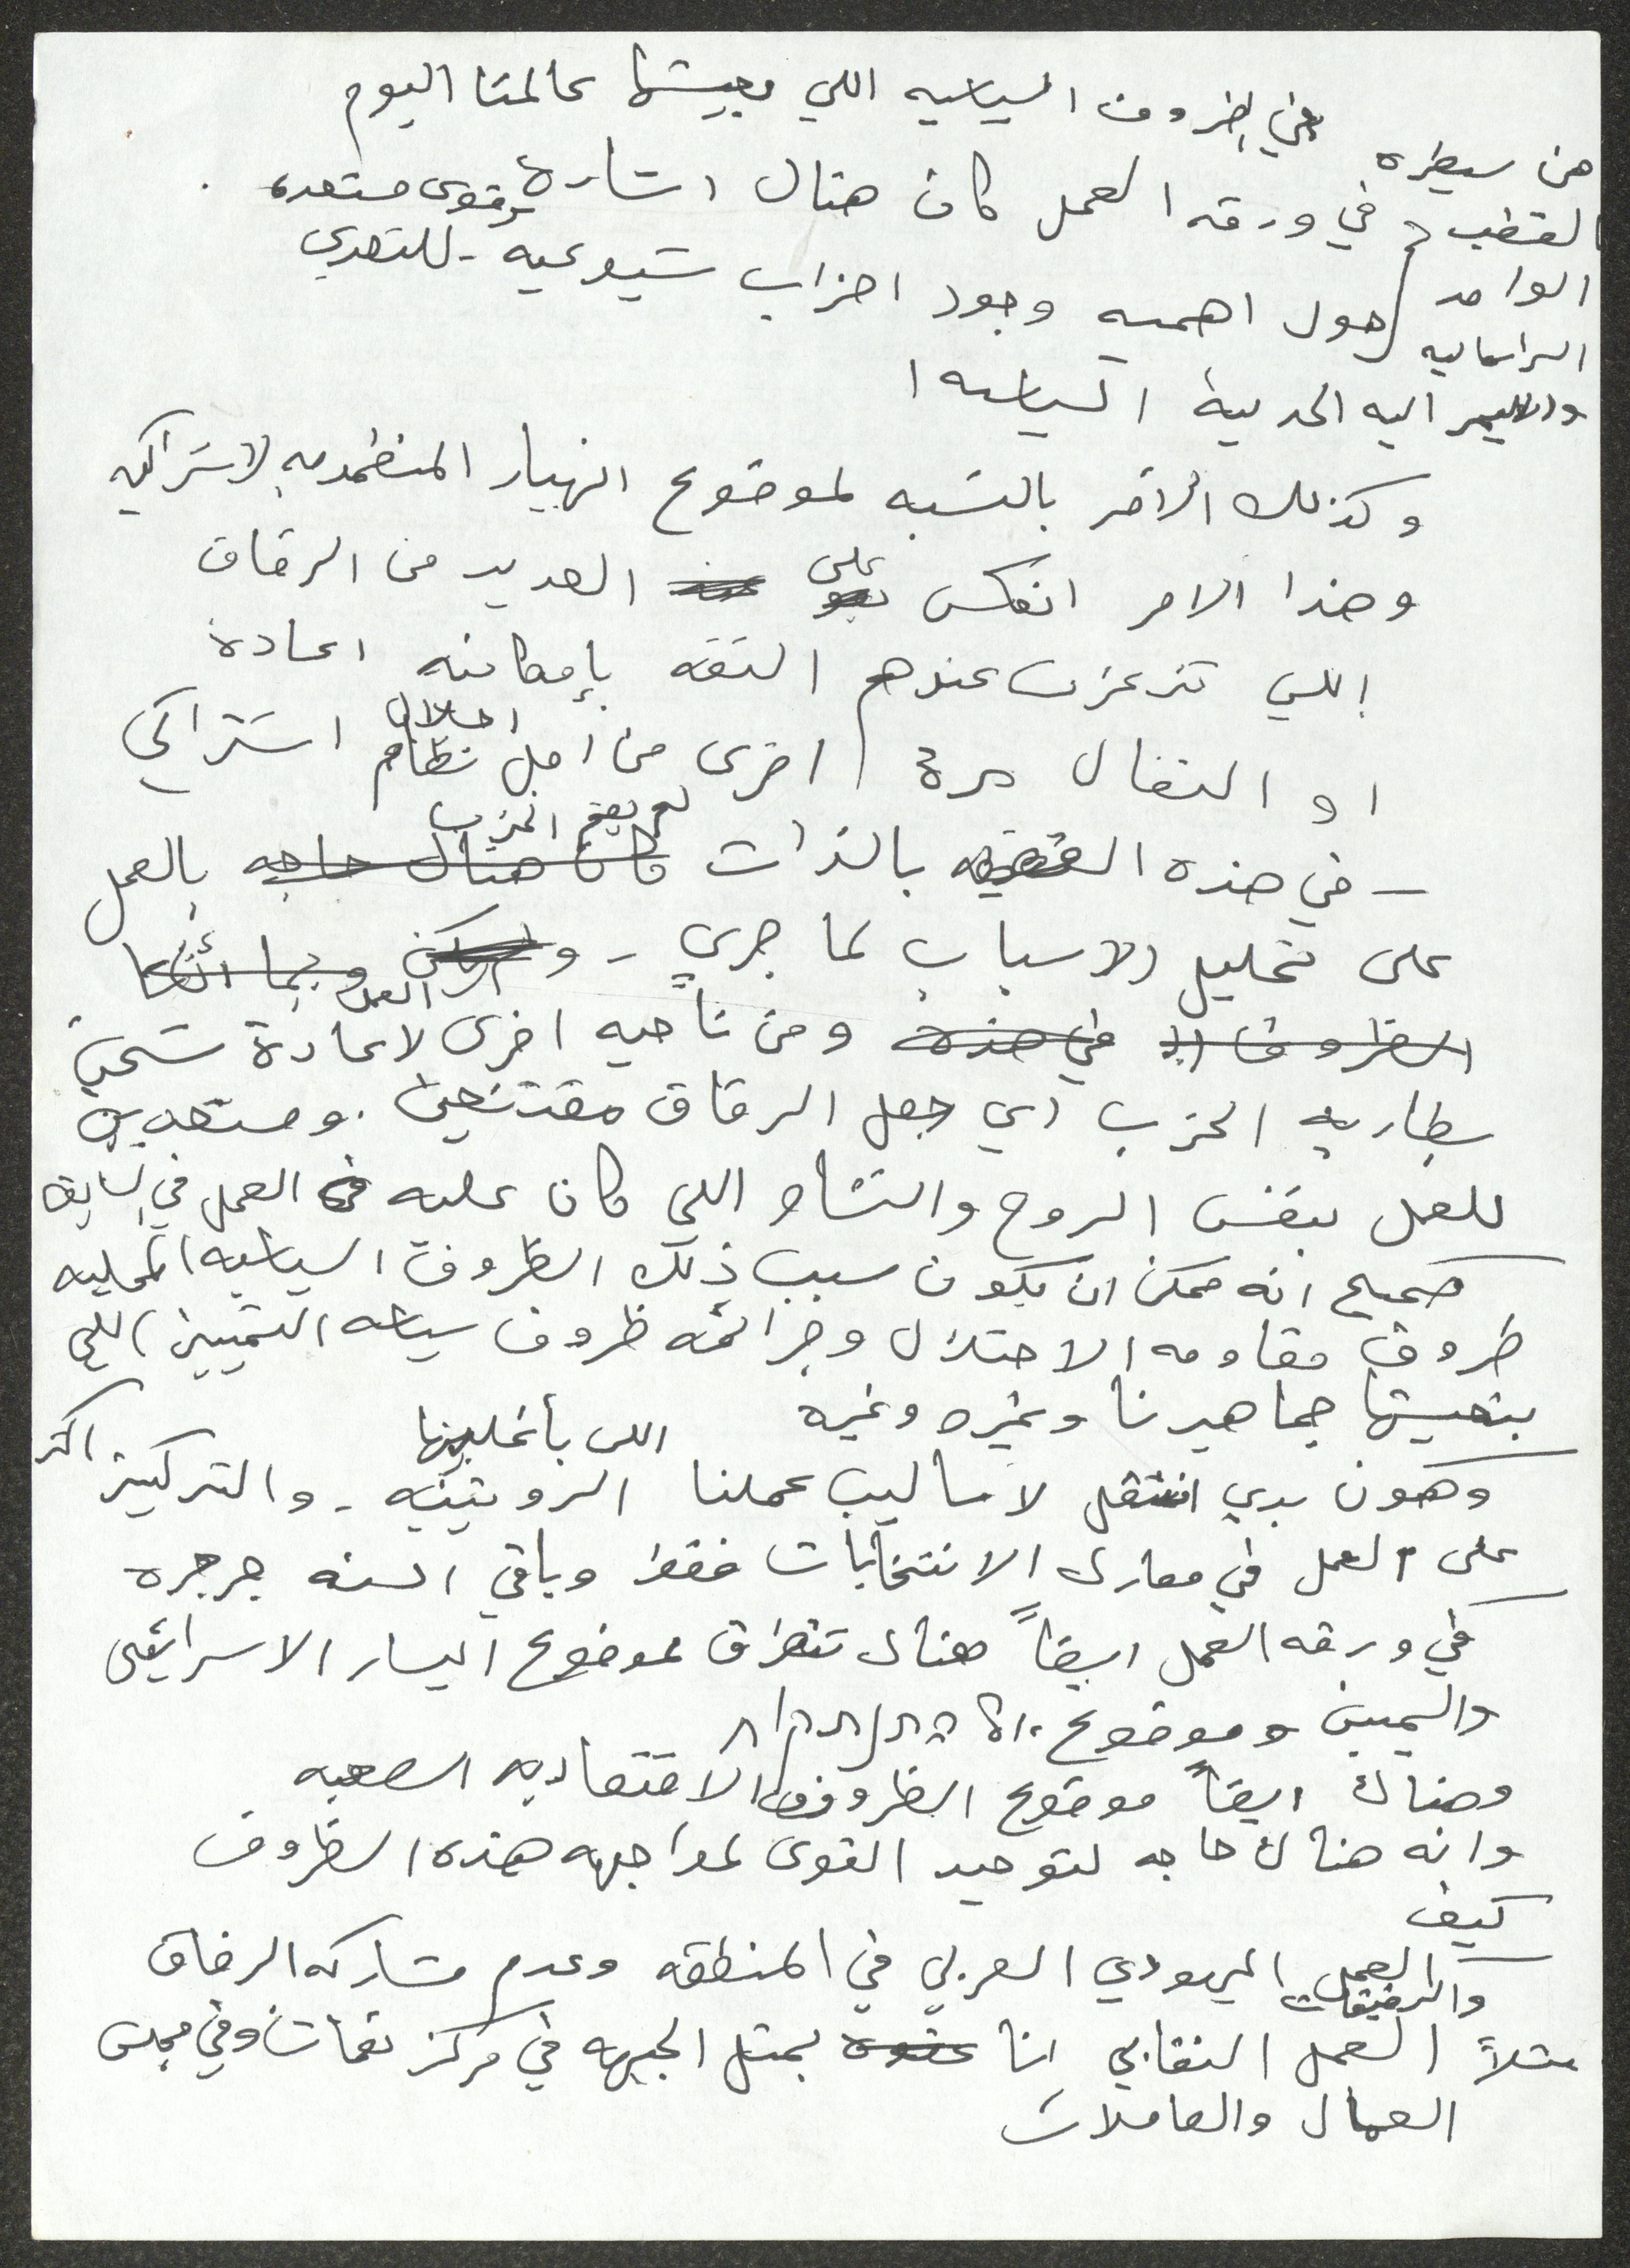 في الظروف السياسيه اللي بعيشها عالمنا اليوم
من سيطره
القطب
الواحد
الراسماليه
والامبرياليه الحربية
في ورقه العمل كان هنال اشارة
وقوى مستعده
حول اهميه وجود احزاب شيوعيه - للتصدي
السياسه ا
وكذلك الامر بالنسبه لموضوع انهيار المنظومه الاشتراكيه
وهذا الامر انعكس على العديد من الرفاق
اللي تزعزعت عندهم الثقه بإمكانيه اعادة
او النضال مرة اخرى من اجل احلال نظام اشتراكي
- في هذه القضيه بالذات كان هنال حاجه بالعمل
على تحليل الاسباب لما جرى - ولكن وبما أننا
الظروف في هذه ومن ناحيه اخرى العمل لاعادة شحن
بطاريه الحزب اي جعل الرفاق مقتنعين . ومستعدين
للعمل بنفس الروح والنشاط اللي كان عليه العمل في السابق
صحيح انه ممكن ان يكون سبب ذلك الظروف السياسيه المحليه
ظروف مقاومه الاحتلال وجرائمه ظروف سياسه التمييز اللي
بتعيشها جماهيرنا وغيره وغيره
وهون بدي انتقل لاساليب عملنا اللي بأغلبيتها الروتينيه - والتركيز اكثر
على العمل في معارك الانتخابات فقط وباقي السنه جرجره
في ورقه العمل ايضاً هنال تتطرق لموضوع اليسار الاسرائيلي
واليمين وموضوع
وهناك ايضاً موضوع الظروف الاقتصاديه الصعبه
وانه هنال حاجه لتوحيد القوى لمواجهه هذه الظروف
كيف
العمل اليهودي العربي في المنطقه وعدم مشاركه الرفاق
والرفيقات
مثلاً العمل النقابي انا عضوه بمثل الجبهه في مركز نعمات وفي مجلس
العمال والعاملات